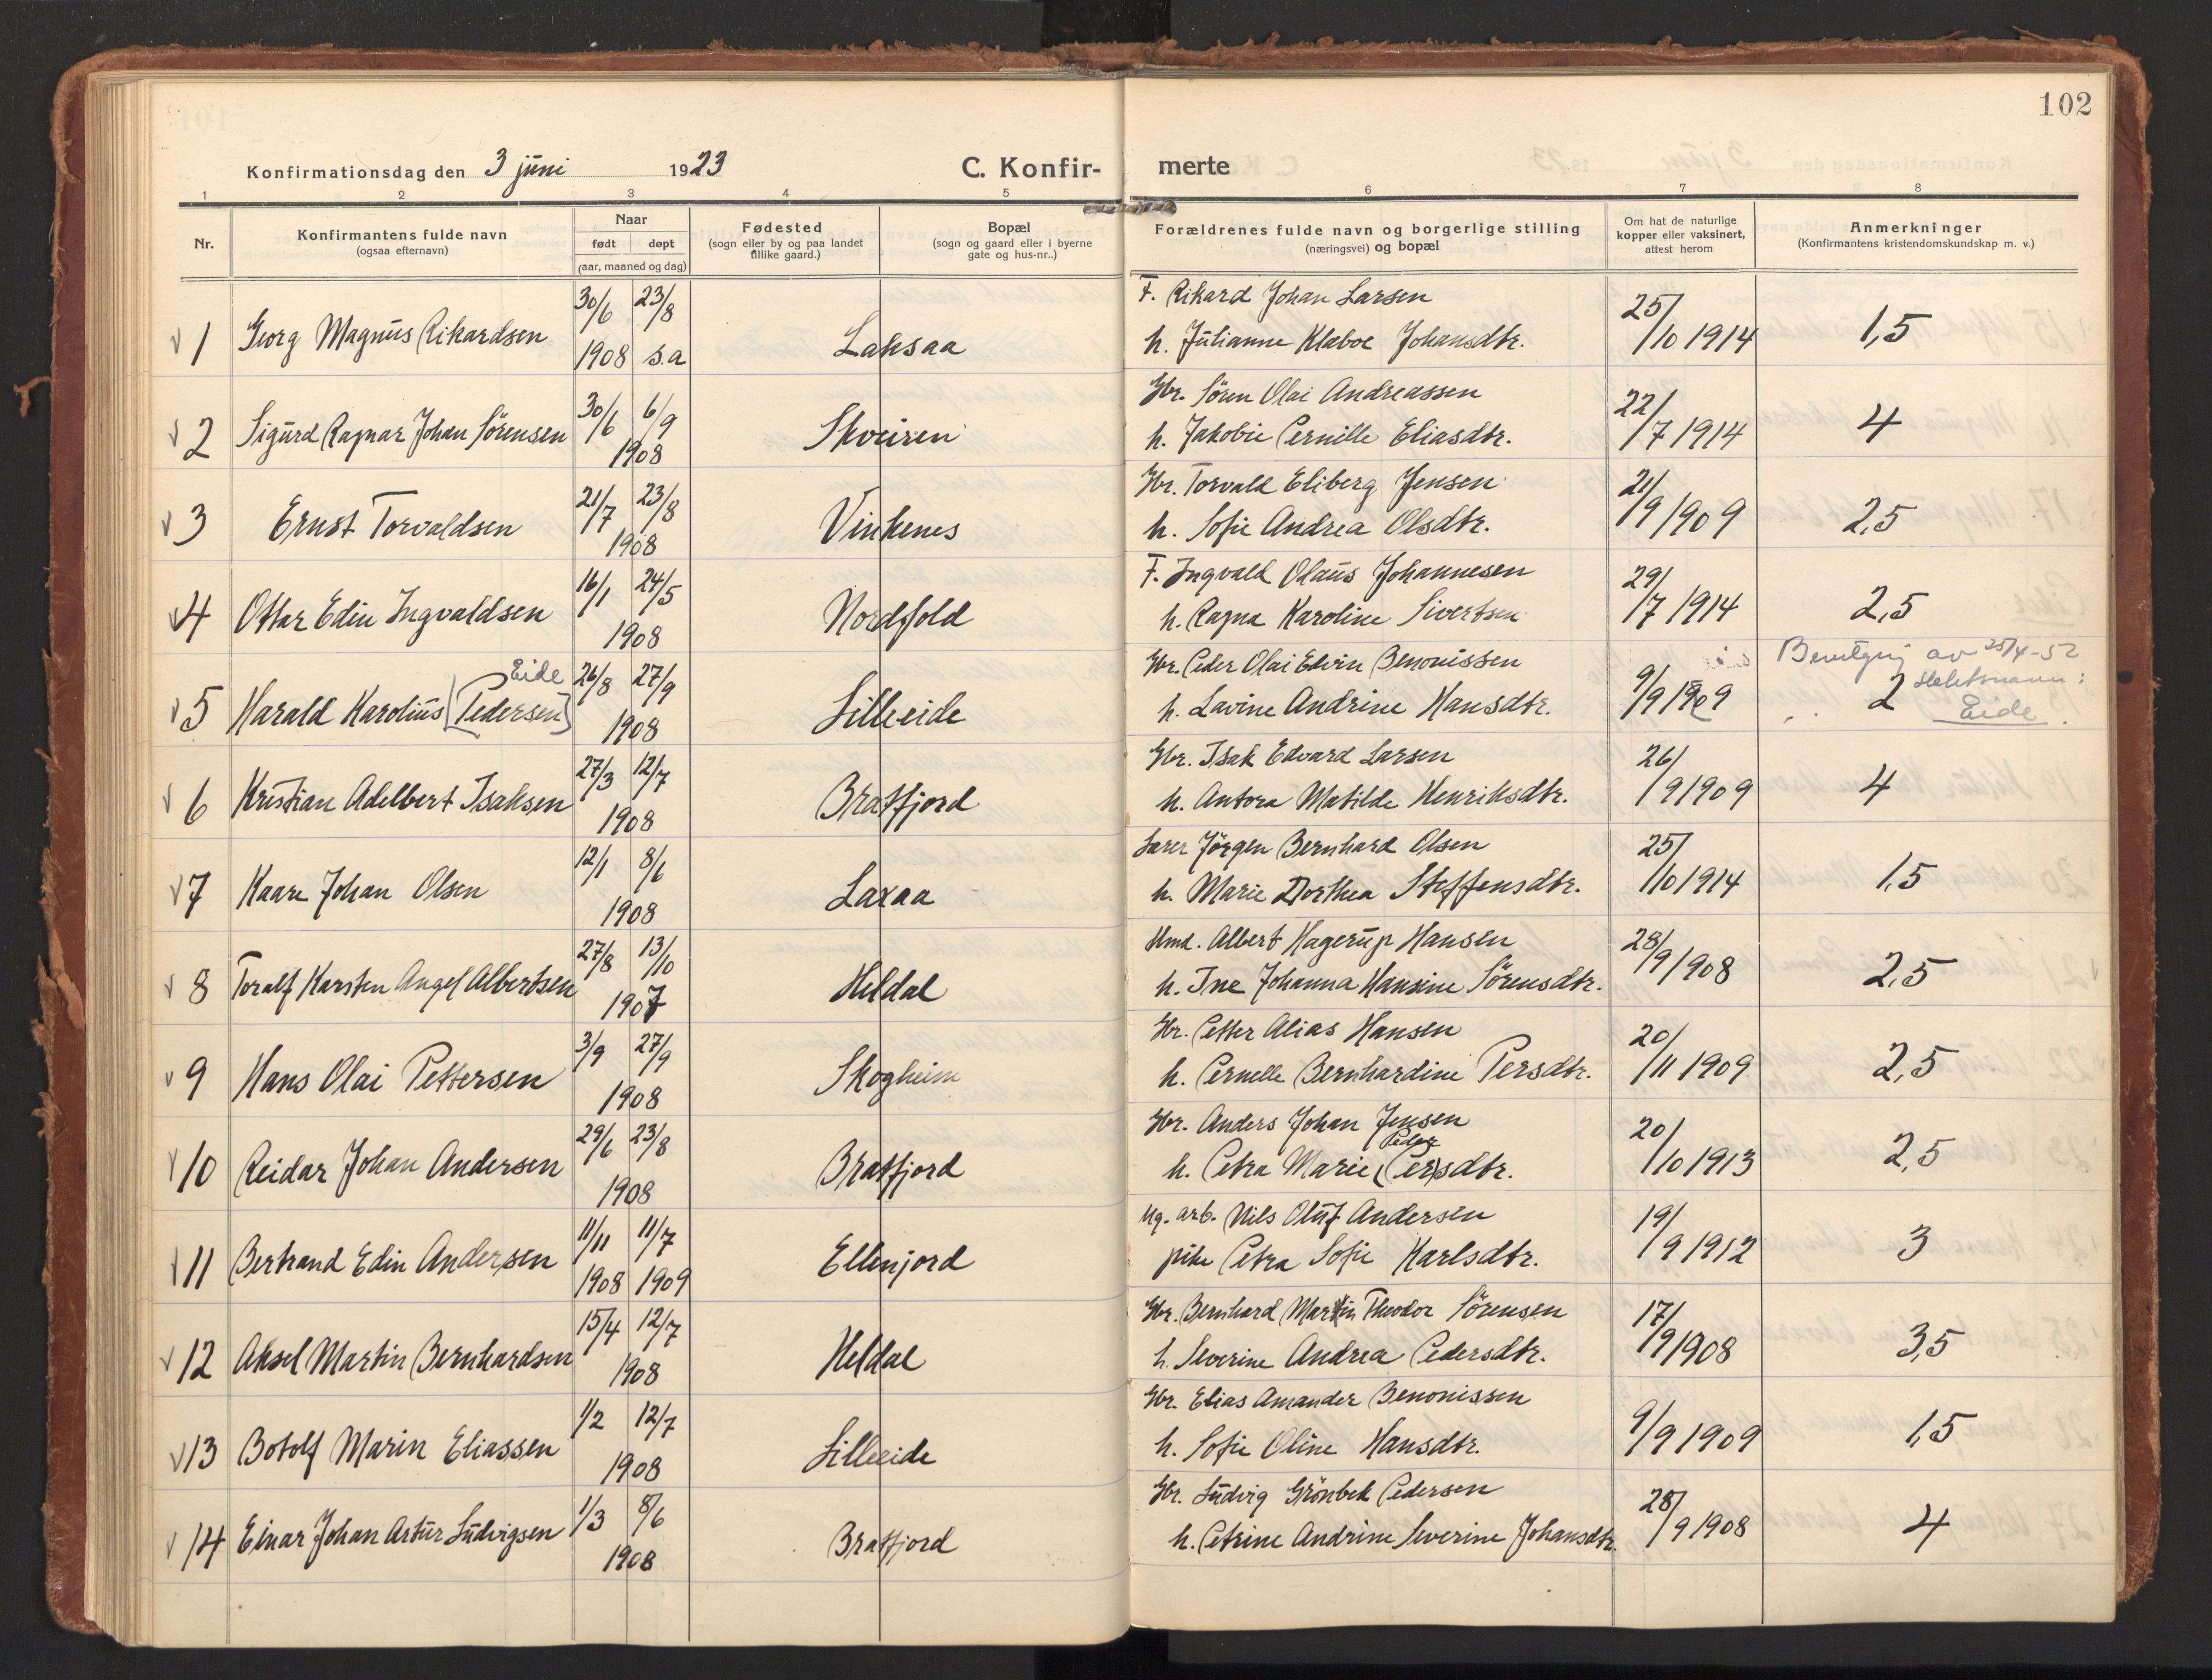 102
Konfirmationsdag den 3 juni 1923 C. Konfirmerte
1 2 3 4 5 6 7 8
Nr.
Konfirmantens fulde navn
(ogsaa efternavn)
Naar
født døpt
(aar, maaned og dag)
Fødested
(sogn eller by og paa landet
tillike gaard.)
Bopæl
(sogn og gaard eller i byerne
gate og hus-nr..)
Forældrenes fulde navn og borgerlige stilling
(næringsvei) og bopæl
Om hat de naturlige
kopper eller vaksinert,
attest herom
Anmerkninger
(Konfirmantens kristendomskundskap m. v.)
30/6 23/8 F. Rikard Johan Larsen 25/
1 Georg Magnus Rikardsen 1908 s.a Laksaa h. Julianne Klæboe Johansdtr. /10 1914 1,5
30/6 6/9 Gbr. Sören Olai Andreassen 22/
2 Sigurd Ragnar Johan Sörensen 1908 Skveiren h. Jakobie Pernille Eliasdtr. /7 1914 4
21/7 23/8 Gbr. Torvald Eliberg Jensen 21/
3 Ernst Torvaldsen 1908 Vinkenes h. Sofie Andrea Olsdtr. /9 1909 2,5
16/1 24/5 F. Ingvald Olaus Johannesen 29/
4 Ottar Edin Ingvaldsen 1908 Nordfold h. Ragna Karoline Sivertsen /7 1914 2,5
Eide 26/8 27/9 Gbr. Peder Olai Edvin Benonissen 9/ av 25/4-52
5 Harald Karolius [Pedersen] 1908 Lilleeide h. Lavine Andrine Hansdtr. /9 1909 2 Slektsnavn:
Eide.
27/3 12/7 Gbr. Isak Edvard Larsen 26/
6 Kristian Adelbert Isaksen 1908 Bratfjord h. Antora Matilde Henriksdtr. /9 1909 4
12/1 8/6 Lærer Jörgen Bernhard Olsen 25/
7 Kaare Johan Olsen 1908 Laxaa h. Marie Dorthea Steffensdtr. /10 1914 1,5
27/8 13/10 Hmd. Albert Hagerup Hansen 28/
8 Toralf Karsten Angel Albertsen 1907 Heldal h. Ine Johanna Hansine Sörensdtr. /9 1908 2,5
3/9 27/9 Gbr. Petter Alias Hansen 20/
9 Hans Olai Pettersen 1908 Skogheim h. Pernelle Bernhardine Persdtr. /11 1909 2,5
29/6 23/8 Gbr. Anders Johan Jensen 20/
Peder
10 Reidar Johan Andersen 1908 Bratfjord h. Petra Marie (Per)sdtr. /10 1913 2,5
11/11 11/7 Ug. arb. Nils Oluf Andersen 19/
11 Bertrand Edin Andersen 1908 1909 Ellenjord pike Petra Sofie Karlsdtr. /9 1912 3
15/4 12/7 Gbr. Bernhard Martin Theodor Sörensen 17/
12 Aksel Martin Bernhardsen 1908 Heldal h. Severine Andrea Pedersdtr. /9 1908 3,5
1/2 12/7 Gbr. Elias Amander Benonissen 9/
13 Botolf Marin Eliassen 1908 Lilleeide h. Sofie Oline Hansdtr. /9 1909 1,5
1/3 8/6 Gbr. Ludvig Grönbek Pedersen 28/
14 Einar Johan Artur Ludvigsen 1908 Bratfjord h. Petrine Andrine Severine Johansdtr. /9 1908 4